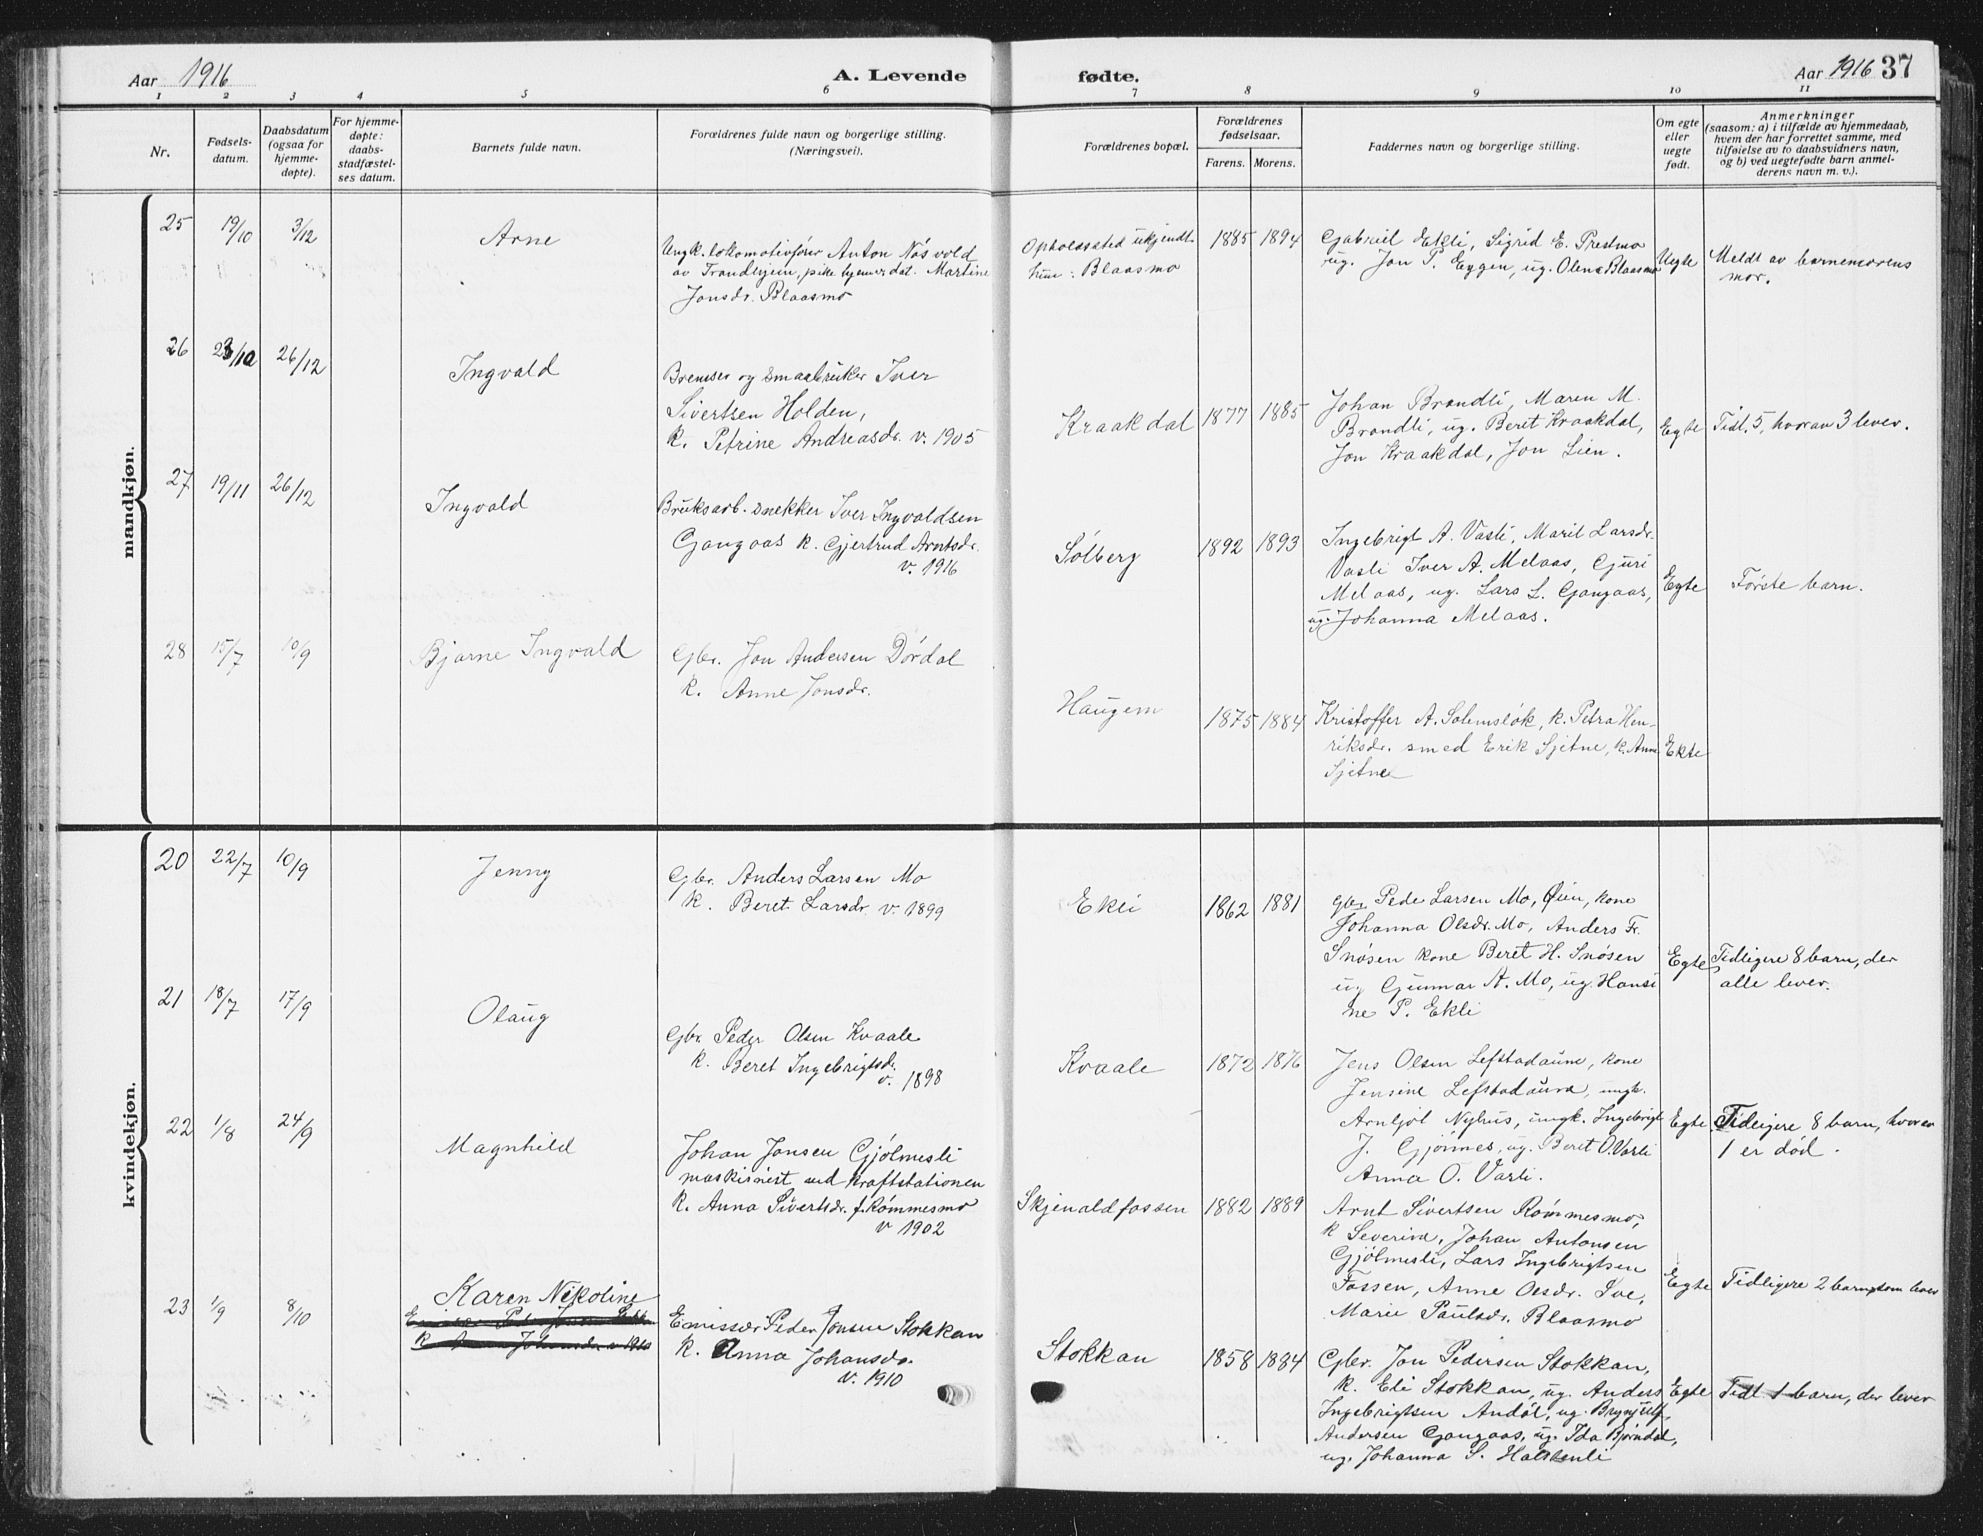 Aar 1916
A. Levende fødte.
Aar 1916 37
1 2 3 4 5 6 7 8 9 10 11
Nr.
Fødsels-
datum.
Daabsdatum
(ogsaa for
hjemme-
døpte).
For hjemme-
døpte:
daabs-
stadfæstel-
ses datum.
Barnets fulde navn.
Forældrenes fulde navn og borgerlige stilling.
(Næringsvei).
Forældrenes bopæl.
Forældrenes
fødselsaar.
Farens. Morens.
Faddernes navn og borgerlige stilling.
Om egte
eller
uegte
født.
Anmerkninger
(saasom: a) i tilfælde av hjemmedaab,
hvem der har forrettet samme, med
tilføielse av to daabsvidners navn,
og b) ved uegtefødte barn anmel-
derens navn m. v.).
mandkjøn.
25 19/10 3/12 Arne
Ungk. lokomotivfører Anton Nøsvold
av Trondhjem, pike hjemmedat. Martine
Jonsdr. Blaasmo
Opholdssted ukjendt
hun: Blaasmo
1885 1894
Gabriel Ekli, Sigrid E. Prestmo
ug. Jon P. Eggen, ug. Olena Blaasmo
Uegte
Meldt av barnemorens
mor.
26 23/10 26/12 Ingvald
Bremser og smaabruker Iver
Sivertsen Holden,
k. Petrine Andreasdr. v. 1905
Kraakdal 1877 1885
Johan Brandli, Maren M.
Brandli, ug. Beret Kraakdal,
Jon Kraakdal, Jon Lien.
Egte
Tidl. 5, hvorav 3 lever.
27 19/11 26/12 Ingvald
Bruksarb. snekker Iver Ingvaldsen
Gangaas k. Gjertrud Arntsdr.
v. 1916
Solberg 1892 1893
Ingebrigt A. Vasli, Marit Larsdr.
Vasli Iver A. Melaas, Guri
Melaas, ug. Lars L. Gangaas,
ug. Johanna Melaas.
Egte
Første barn.
28 15/7 10/9 Bjarne Ingvald
Gbr. Jon Andersen Dørdal
k. Anne Jonsdr.
Haugem 1875 1884
Kristoffer A. Solemsløk, k. Petra Hen-
riksdr. smed Erik Sjetne, k. Anne
Sjetne
Ekte
kvindekjøn.
20 22/7 10/9 Jenny
Gbr. Anders Larsen Mo
k. Beret Larsdr. v. 1899
Ekli 1862 1881
gbr. Peder Larsen Mo, Øien, kone
Johanna Olsdr. Mo, Anders Fr.
Snøsen kone Beret H. Snøsen
ug Gunnar A. Mo, ug. Hansi
ne P. Ekli
Egte
Tidligere 8 barn, der
alle lever.
21 18/7 17/9 Olaug
Gbr. Peder Olsen Kvaale
k. Beret Ingebrigtsdr.
v. 1898
Kvaale 1872 1876
Jens Olsen Lefstadaune, kone
Jensine Lefstadaune, ungk.
Arnljot Nyhus, ungk. Ingebrigt
J. Gjønnes, ug. Beret O. Vasli
Anna O. Vasli.
Egte
Tidligere 8 barn, hvorav
1 er død.
22 1/8 24/9 Magnhild
Johan Jonsen Gjølmesli
maskinist ved Kraftstationen
k. Anna Sivertsdr. f. Rømmesmo
v 1902
Skjenaldfossen 1882 1889
Arnt Sivertsen Rømmesmo,
k Severine, Johan Antonsen
Gjølmesli, Lars Ingebrigtsen
Fossen, Anne Olsdr. Sve,
Marie Paulsdr. Blaasmo
Egte
Tidligere 2 barn som lever
23 1/9 8/10 Karen Nikoline
Emissær Peder Jonsen Stokkan
k. Anna Johansdr.
v. 1910
Stokkan 1858 1884
Gbr. Jon Pedersen Stokkan,
k. Eli Stokkan, ug. Anders
Ingebrigtsen Andøl, ug. Brynjulf
Andersen Gangaas, ug. Ida Bjørndal,
ug. Johanna S. Halstenli
Egte
Tidl 1 barn, der lever